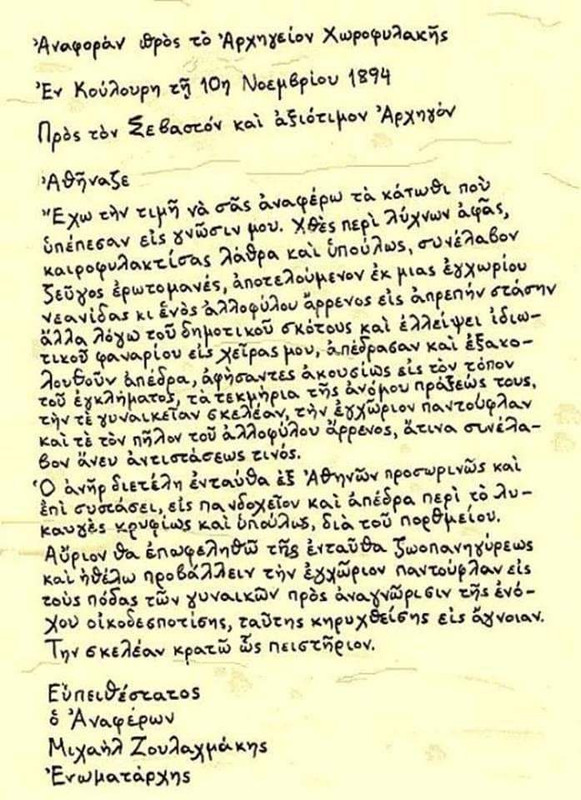 Ἀναφοράν πρὸς τὸ Ἀρχηγείον Χωροφυλακῆς
Ἐν Κούλουρη τῇ 10η Νοεμβρίου 1894
Πρὸς τὸν Σεβαστόν καὶ ἀξιότιμον Ἀρχηγόν
Ἀθήναζε
"Ἔχω τὴν τιμὴ νὰ σᾶς ἀναφέρω τὰ κάτωθι ποὺ
ὑπέπεσαν εἰς γνῶσιν μου. Χθὲς περὶ λύχνων ἀφᾶς,
καιροφυλακτίσας λάθρα καὶ ὑπούλως, συνέλαβον
ζεῦγος ἐρωτομανές, ἀποτελούμενον ἐκ μιας ἐγχωρίου
νεανίδας κι ἑνὸς ἀλλοφύλου ἄρρενος εἰς ἀπρεπήν στάσην
ἄλλα λόγω τοῦ δημοτικοῦ σκότους καὶ ἐλλείψει ἰδιω-
τικοῦ φαναρίου εἰς χεῖρας μου, ἀπέδρασαν καὶ ἐξακο-
λουθοῦν ἀπέδρα, ἀφήσαντες ἀκουσίως εἰς τὸν τόπον
τοῦ ἐγκλήματος, τὰ τεκμήρια τῆς ἀνόμου πράξεώς τους,
τὴν τὲ γυναικεῖαν σκελέαν, τὴν ἐγχώριον παντούφλαν
καὶ τὲ τὸν πῆλον τοῦ ἀλλοφύλου ἄρρενος, ἅτινα συνέλα-
βον ἄνευ ἀντιστάσεως τινός.
Ὁ ἀνὴρ διετέλη ἐνταύθα ἐξ Ἀθηνῶν προσωρινῶς καὶ
ἐπὶ συστάσει, εἰς πανδοχεῖον καὶ ἀπέδρα περὶ τὸ λυ-
καυγὲς κρυφίως καὶ ὑπούλως, διὰ τοῦ πορθμείου.
Αὔριον θα ἐπωφεληθῶ τῆς ἐνταύθα ζωοπανηγύρεως
καὶ ἠθέλω προβάλλειν τὴν ἐγχώριον παντούφλαν εἰς
τοὺς πόδας τῶν γυναικῶν πρὸς ἀναγνώρισιν τῆς ἐνό-
χου οἰκοδεσποτίσης, ταύτης κηρυχθείσης εἰς ἄγνοιαν.
Την σκελέαν κρατῶ ὡς πειστήριον.
Εὐπειθέστατος
ὁ Ἀναφέρων
Μιχαὴλ Ζουλαχμάκης
Ἐνωματάρχης